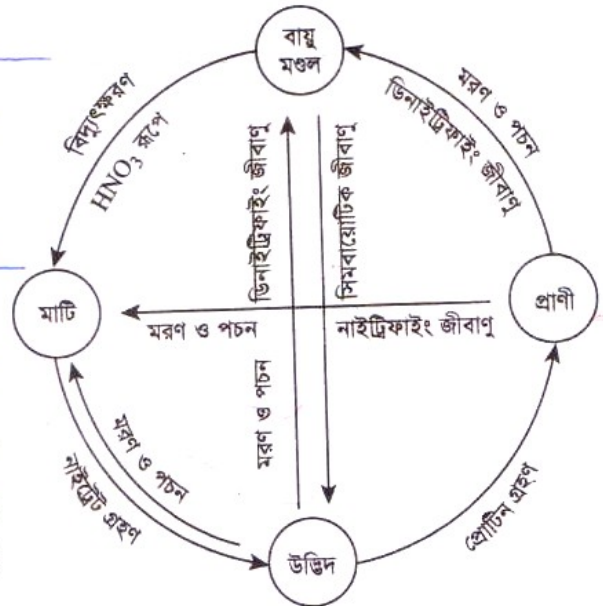 বায়ু
মণ্ডল
বিদ্যুৎক্ষরণ
HNO₃ রূপে
মরণ ও পচন
ডিনাইট্রিফাইং জীবাণু
ডিনাইট্রিফাইং জীবাণু
সিমবায়োটিক জীবাণু
মাটি
প্রাণী
মরণ ও পচন
নাইট্রিফাইং জীবাণু
মরণ ও পচন
মরণ ও পচন
নাইট্রেট গ্রহণ
প্রোটিন গ্রহণ
উদ্ভিদ